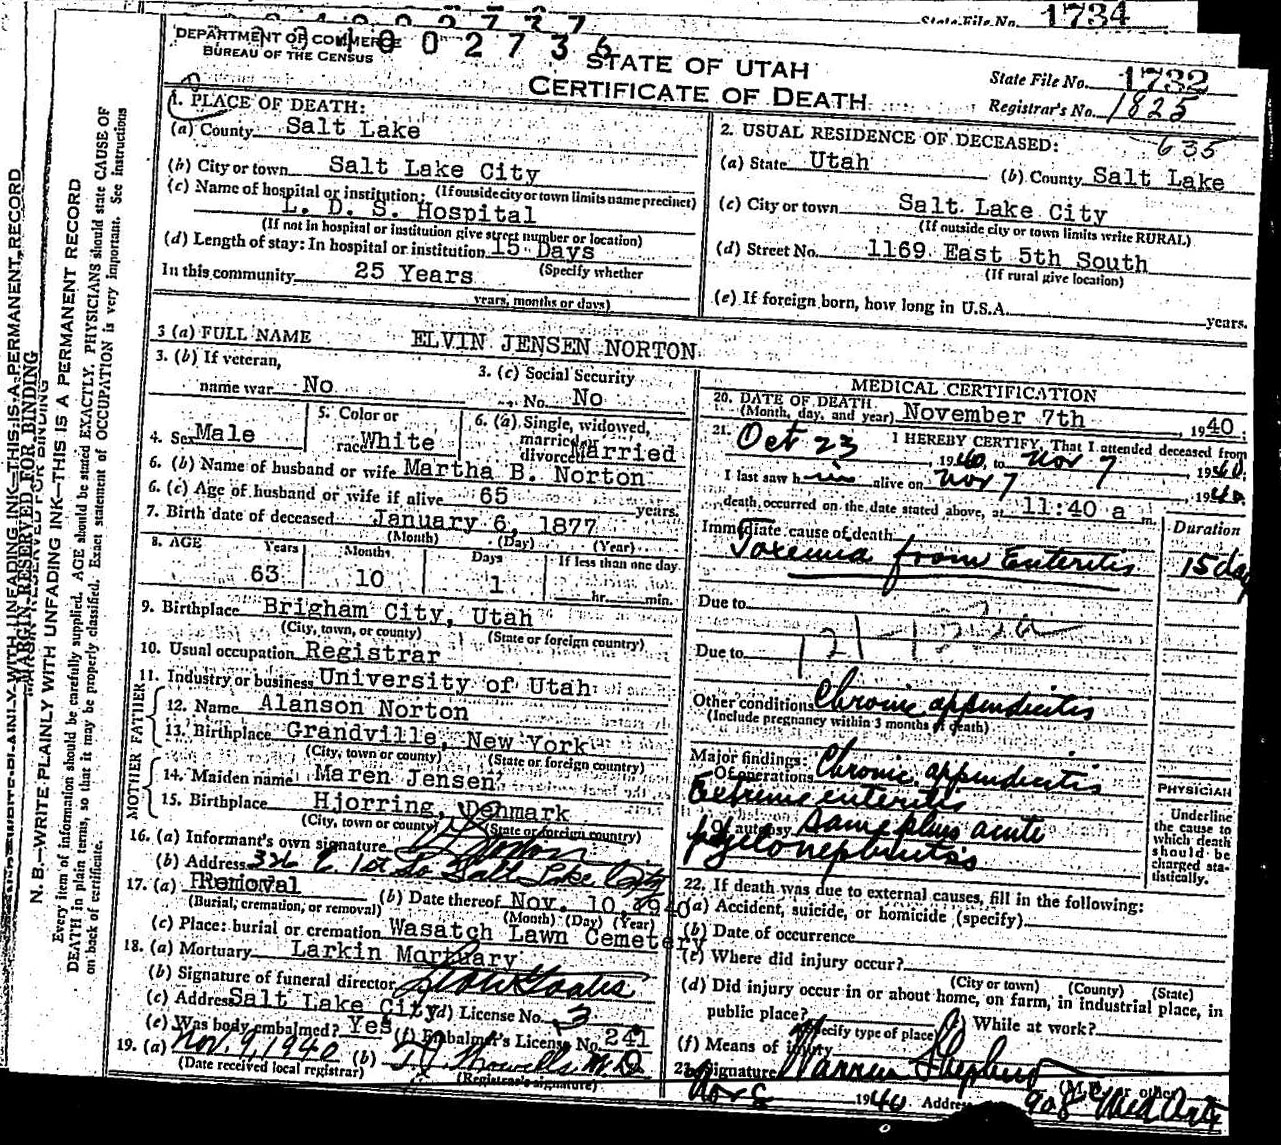 State File No. 1734
DEPARTMENT OF COMMERCE
BUREAU OF THE CENSUS
0 0 2 7 3 6
STATE OF UTAH
CERTIFICATE OF DEATH
State File No. 1732
Registrar's No. 1825
635
1. PLACE OF DEATH:
(a) County Salt Lake
(b) City or town Salt Lake City
(If outside city or town limits name precinct)
(c) Name of hospital or institution:
L. D. S. Hospital
(If not in hospital or institution give street number or location)
(d) Length of stay: In hospital or institution 15 Days
(Specify whether
In this community 25 Years
years, months or days)
2. USUAL RESIDENCE OF DECEASED:
(a) State Utah (b) County Salt Lake
(c) City or town Salt Lake City
(If outside city or town limits write RURAL)
(d) Street No. 1169 East 5th South
(If rural give location)
(e) If foreign born, how long in U.S.A. years.
3 (a) FULL NAME ELVIN JENSEN NORTON
3. (b) If veteran,
name war No
3. (c) Social Security
No. No
4. Sex Male
5. Color or
race White
6. (a) Single, widowed,
married or
divorced Married
6. (b) Name of husband or wife Martha B. Norton
6. (c) Age of husband or wife if alive 65 years.
7. Birth date of deceased January 6, 1877
(Month) (Day) (Year)
8. AGE Years Months Days If less than one day
63 10 1 hr. min.
9. Birthplace Brigham City, Utah
(City, town, or county) (State or foreign country)
10. Usual occupation Registrar
11. Industry or business University of Utah
FATHER
12. Name Alanson Norton
13. Birthplace Grandville, New York
(City, town or county) (State or foreign country)
MOTHER
14. Maiden name Maren Jensen
15. Birthplace Hjorring, Denmark
(City, town or county) (State or foreign country)
16. (a) Informant's own signature Norton
(b) Address 326 E. 1st So Salt Lake City
17. (a) Removal (b) Date thereof Nov. 10, 1940
(Burial, cremation, or removal) (Month) (Day) (Year)
(c) Place: burial or cremation Wasatch Lawn Cemetery
18. (a) Mortuary Larkin Mortuary
(b) Signature of funeral director
(c) Address Salt Lake City (d) License No. 3
(e) Was body embalmed? Yes (f) Embalmer's License No. 241
19. (a) Nov. 9, 1940 (b) M.D.
(Date received local registrar) (Registrar's signature)
MEDICAL CERTIFICATION
20. DATE OF DEATH
(Month, day, and year) November 7th, 1940.
21. I HEREBY CERTIFY, That I attended deceased from
Oct 23 1940, to Nov 7 1940.
I last saw him alive on Nov 7, 1940.
death occurred on the date stated above, at 11:40 a m.
Duration
Immediate cause of death
Toxemia from Enteritis 15 day
Due to
Due to
Other conditions Chronic appendicitis
(Include pregnancy within 3 months of death)
Major findings:
Of operations Chronic appendicitis
Extreme enteritis
Of autopsy Same plus acute
pyelonephritis
PHYSICIAN
Underline
the cause to
which death
should be
charged sta-
tistically.
22. If death was due to external causes, fill in the following:
(a) Accident, suicide, or homicide (specify)
(b) Date of occurrence
(c) Where did injury occur?
(City or town) (County) (State)
(d) Did injury occur in or about home, on farm, in industrial place, in
public place?
(Specify type of place) (e) While at work?
(f) Means of injury
23. Signature Warren Shepherd
(M.D. or other)
Nov 8 1940 Address 908 Med Arts
MARGIN RESERVED FOR BINDING
N. B.—WRITE PLAINLY WITH UNFADING INK—THIS IS A PERMANENT RECORD
Every item of information should be carefully supplied. AGE should be stated EXACTLY. PHYSICIANS should state CAUSE OF
DEATH in plain terms, so that it may be properly classified. Exact statement of OCCUPATION is very important. See instructions
on back of certificate.